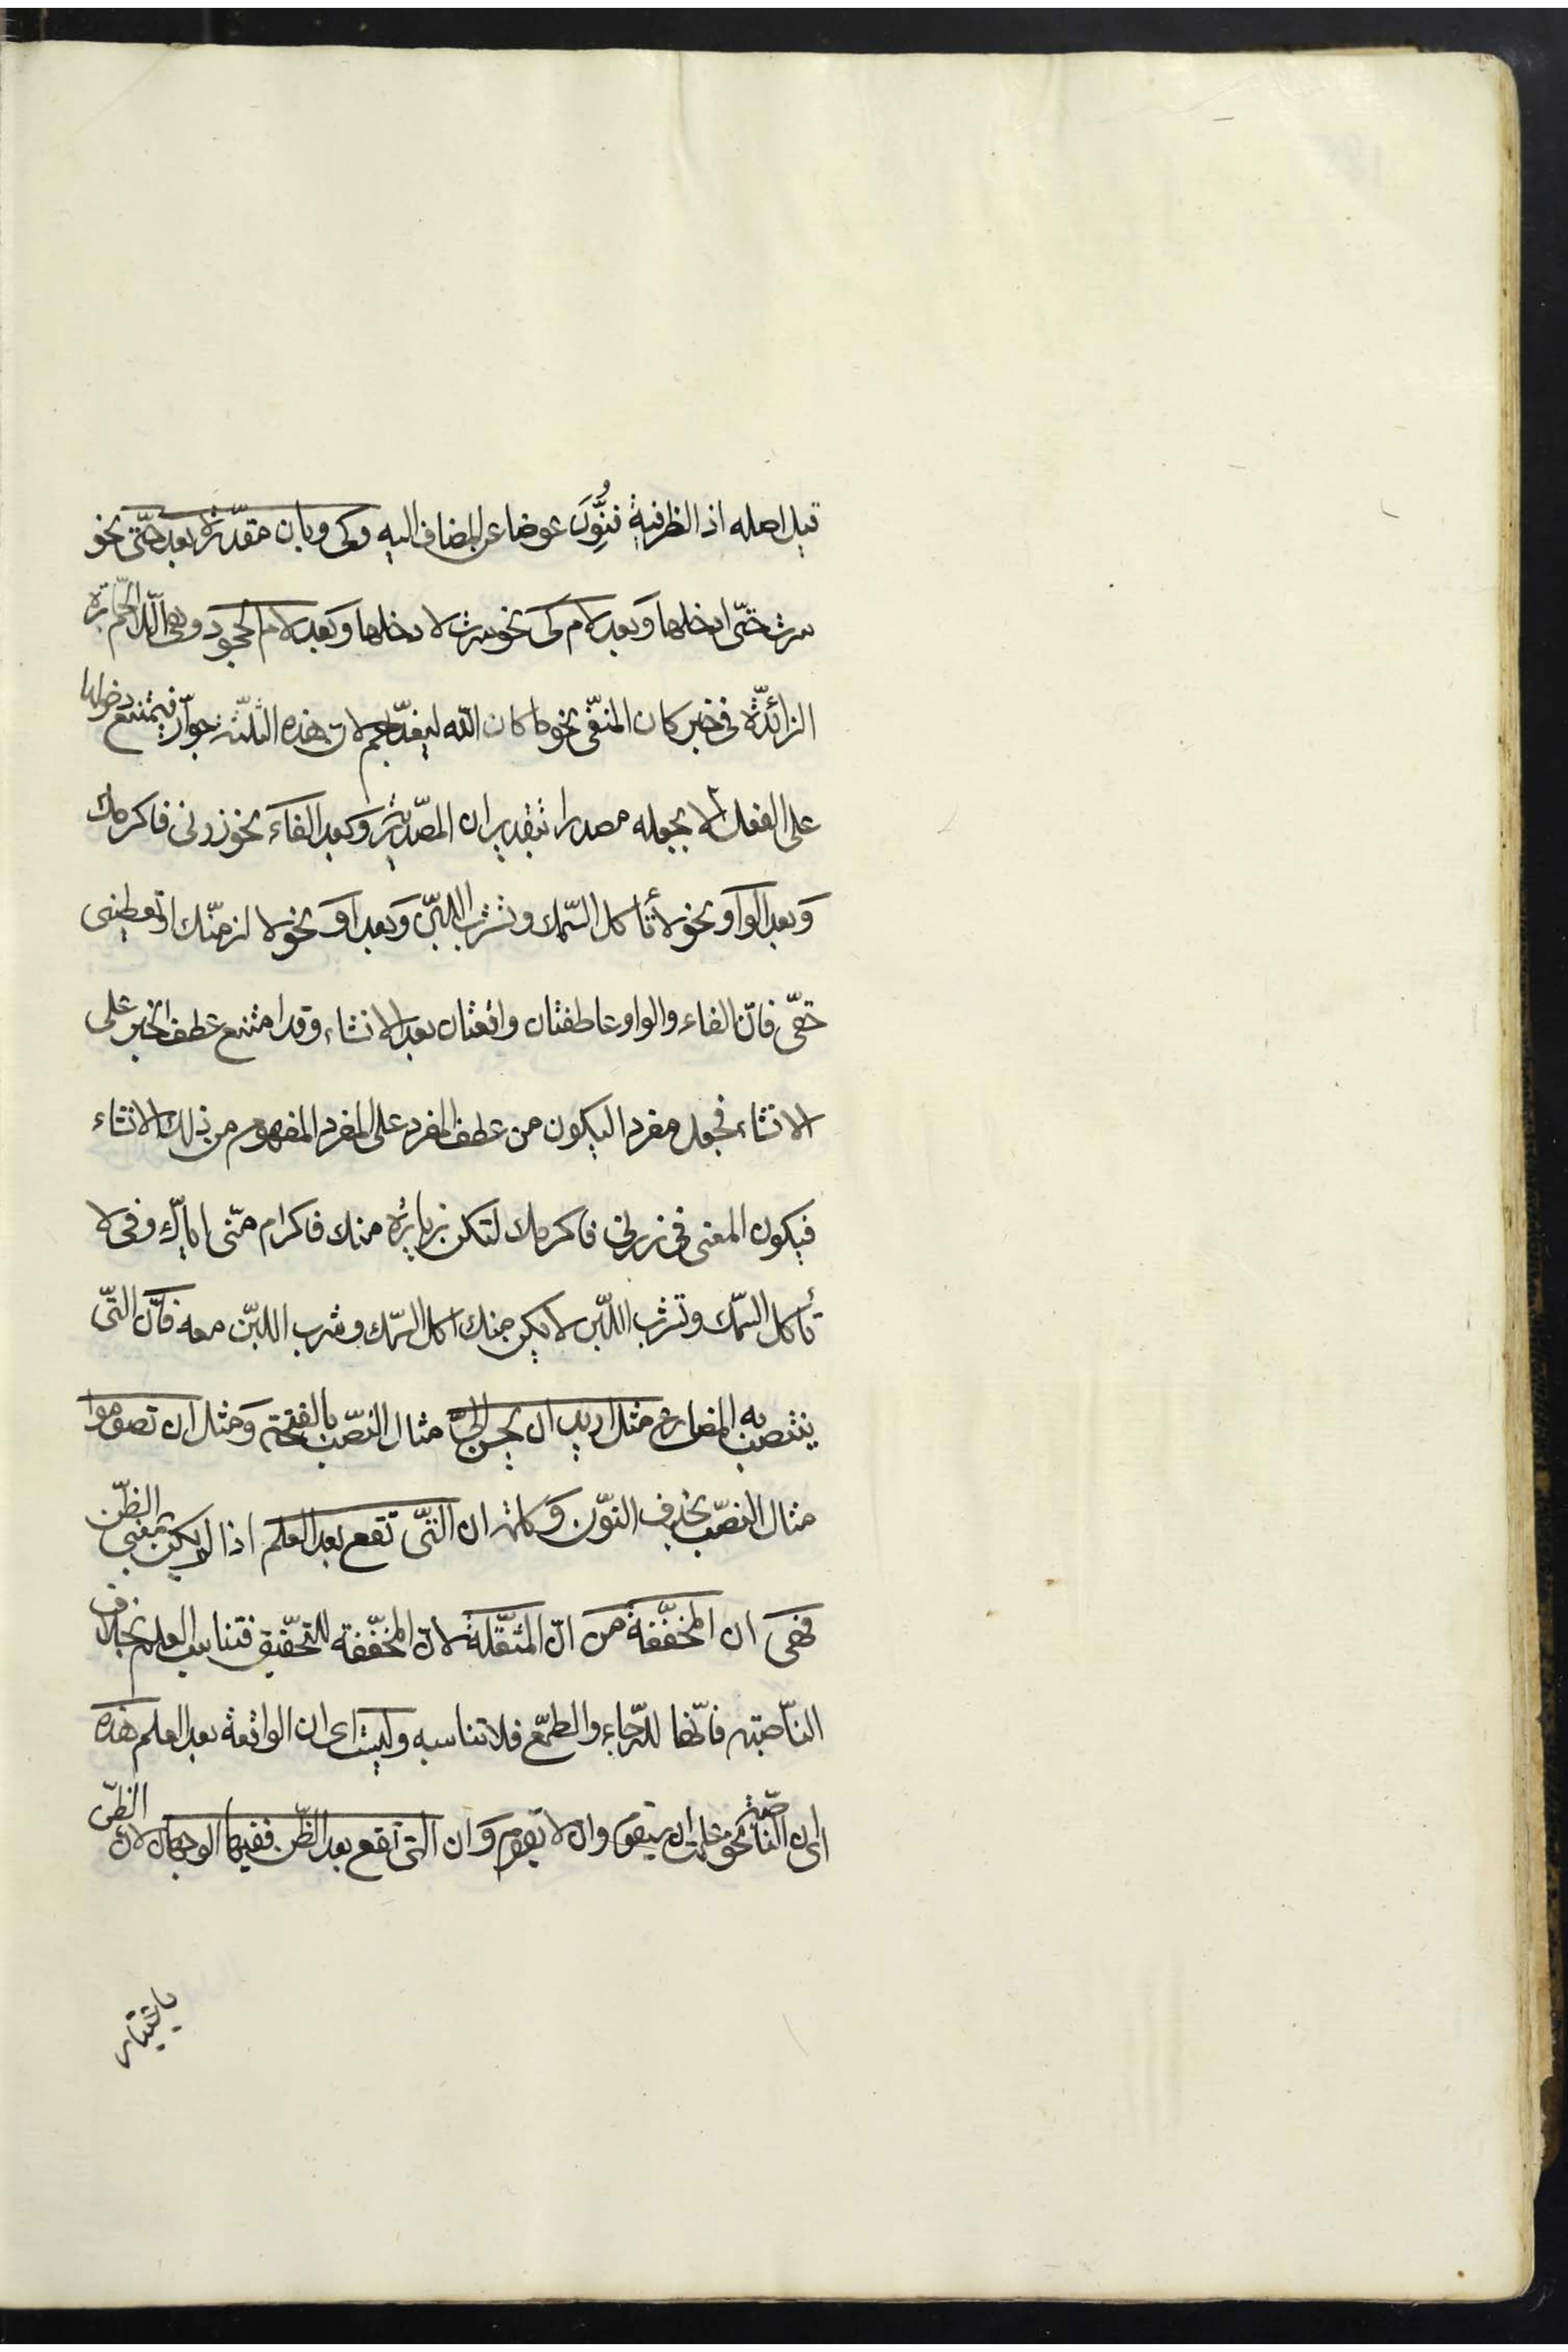 قيل اصله اذ الظرفية فنُوِّنَ عوضا عن المضاف اليه وكى وبان مقدّرة بعد حتّى نحو
سرت حتّى ادخلها وبعد لام كى نحو سرت لادخلها وبعد لام الجحود وهى اللام الجارّة
الزائدة فى خبر كان المنفّى نحو ما كان الله ليعذّبهم لان هذه الثلثة جوارّ فيمتنع دخولها
على الفعل الا بجعله مصدرا بتقدير ان المصدرية وبعد الفاء نحو زرنى فاكرمك
وبعد الواو نحو لا تأكل السّمك وتشرب اللبن وبعد او نحو لالزمنّك او تعطينى
حقّى فانّ الفاء والواو عاطفتان واقعتان بعد الانشاء وقد امتنع عطف الخبر على
الانشاء فجعل مفردا ليكون من عطف المفرد على المفرد المفهوم من ذلك الانشاء
فيكون المعنى فى زرنى فاكرمك لتكن زيارة منك فاكرام منّى اياك وفى لا
تأكل السمّك وتشرب اللّبن لا يكن منك اكل السمّك وشرب اللبّن معه فان التّى
ينتصب به المضارع مثل اريد ان يحسن الىّ مثال النصّب بالفتحة ومثل ان تصوموا
مثال النصّب بحذف النوّن وكلمة ان التّى تقع بعد العلم اذا لم يكن بمعنى الظّن
فهى ان المخفّفة من انّ المثقّلة لانّ المخفّفة للتحّقيق فتناسب العلم بخلاف
النّاصبة فانّها للرّجاء والطمّع فلا تناسبه وليست اى ان الواقعة بعد العلم هذه
اى ان الناصبة نحو علمت ان سيقوم وان لا يقوم وان التى تقع بعد الظّن ففيها الوجهان لان الظّن
باعتبار